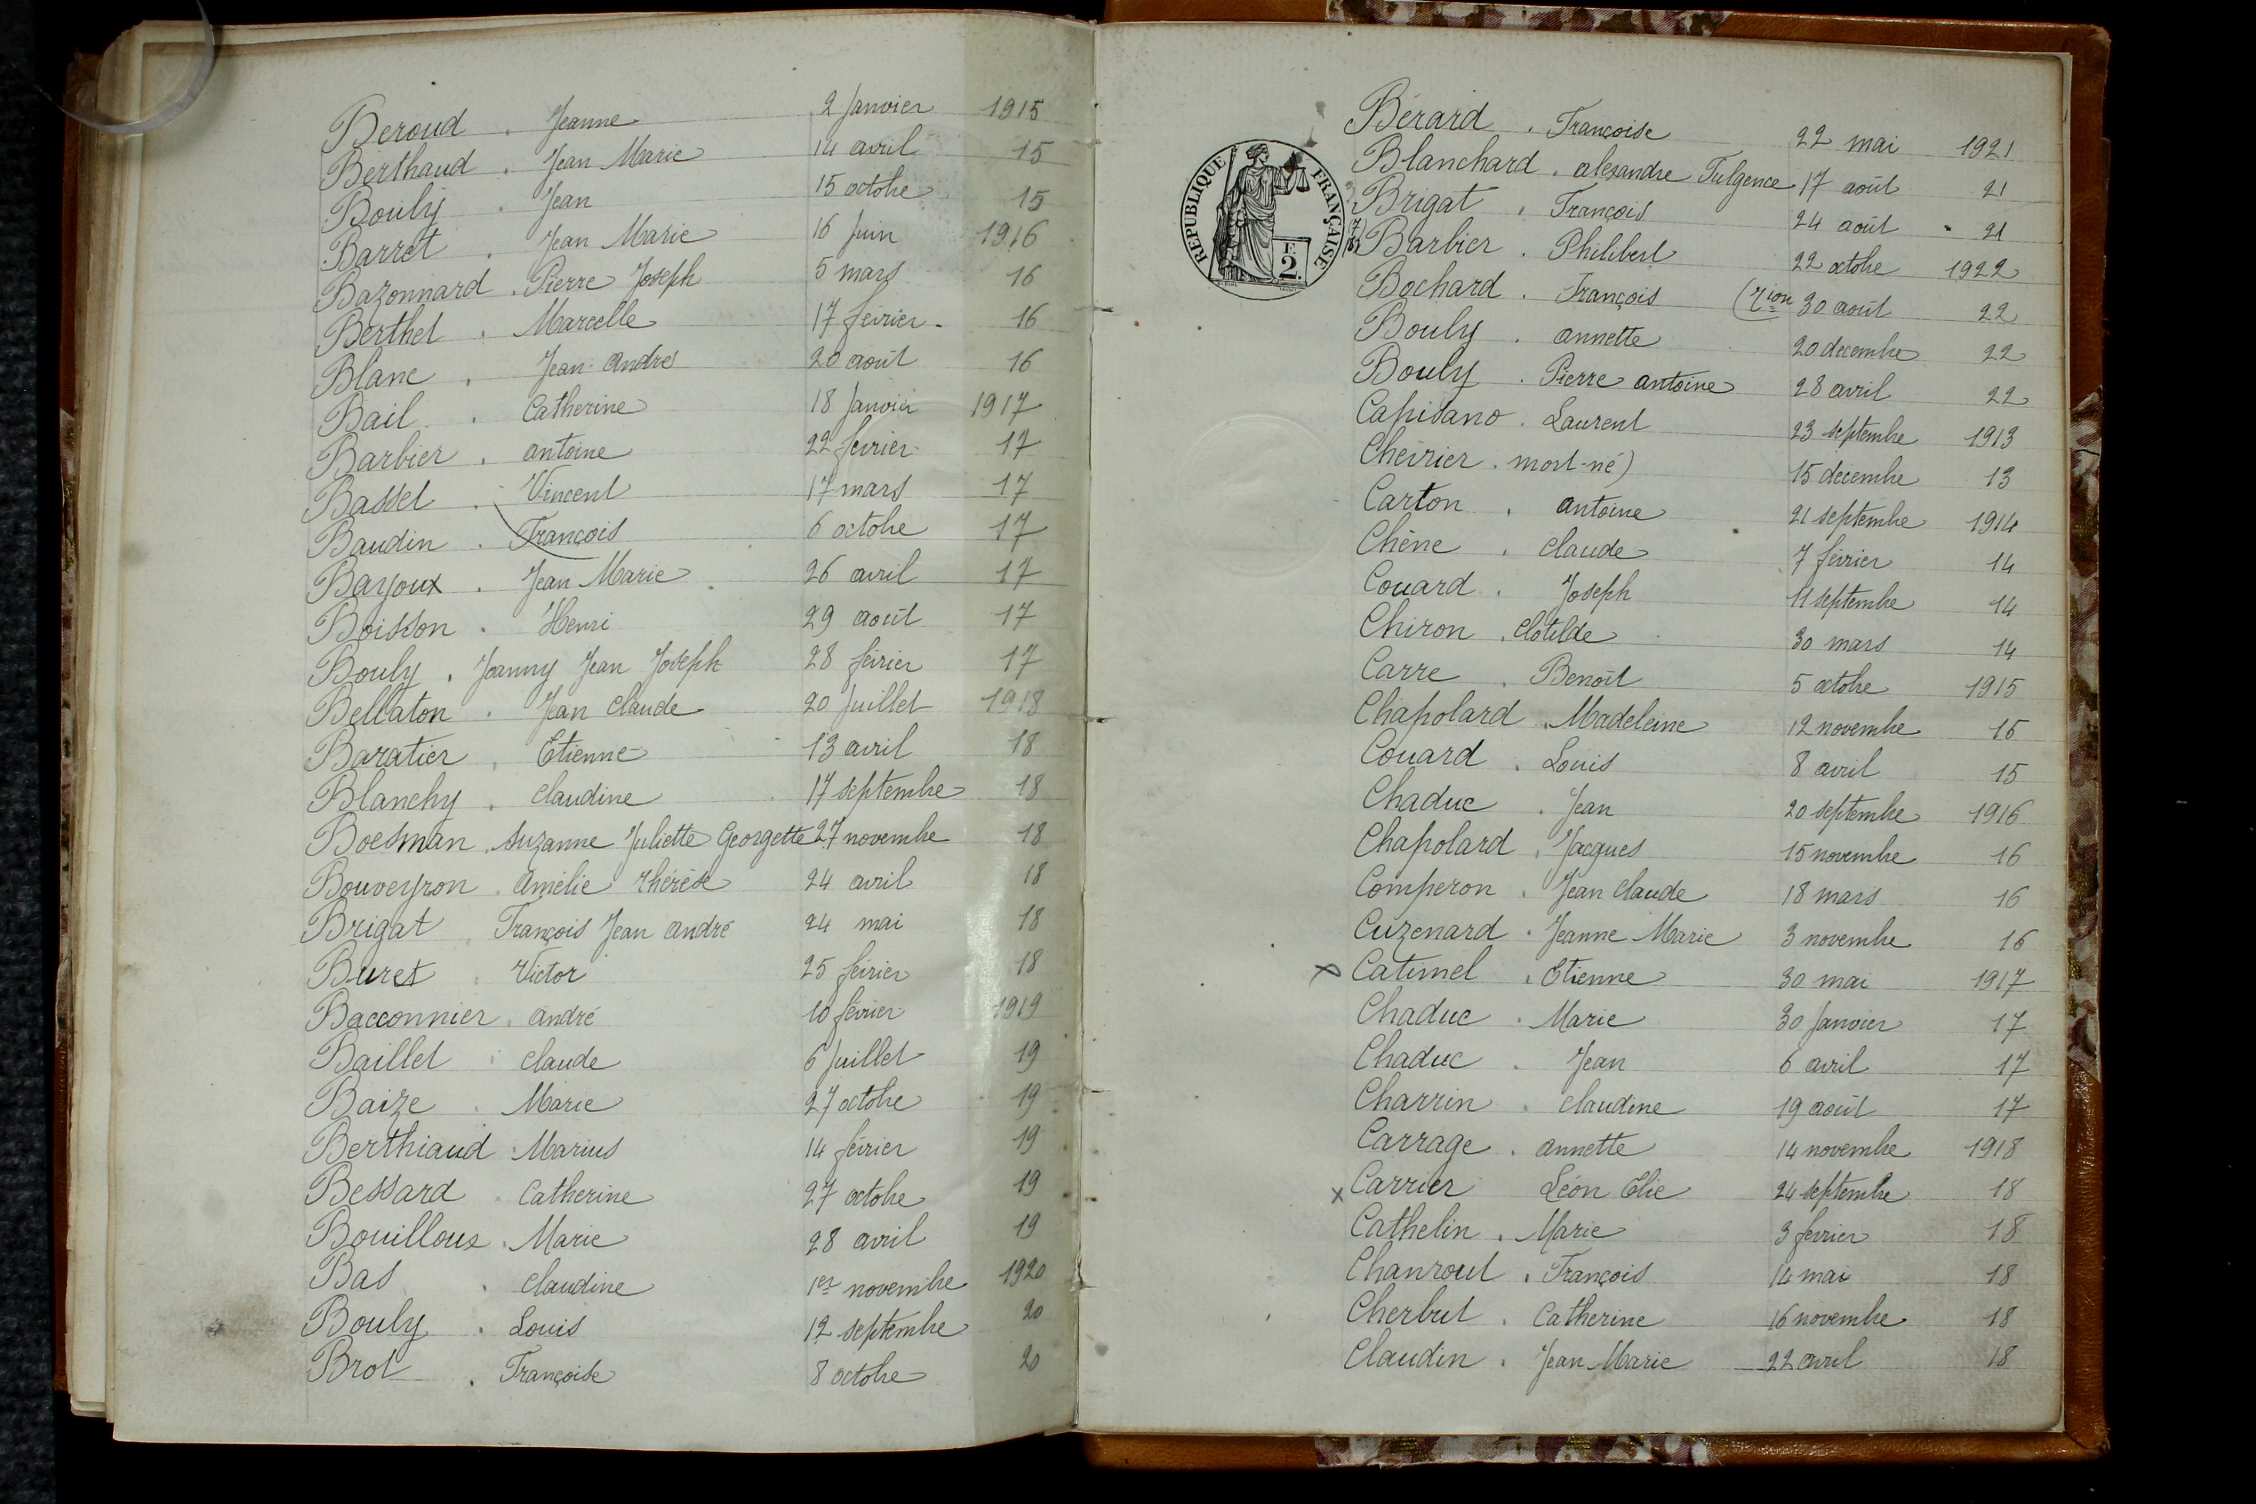 Beroud . Jeanne 2 Janvier 1915
Berthaud . Jean Marie 14 avril 15
Bouly . Jean 15 octobre 15
Barret . Jean Marie 16 Juin 1916
Bazonnard . Pierre Joseph 5 mars 16
Berthet . Marcelle 17 février 16
Blanc . Jean andré 20 août 16
Bail . Catherine 18 Janvier 1917
Barbier . antoine 22 février 17
Basset . Vincent 17 mars 17
Baudin . François 6 octobre 17
Bayoux . Jean Marie 26 avril 17
Boisson . Henri 29 août 17
Bouly . Joanny Jean Joseph 28 février 17
Bellaton . Jean Claude 20 Juillet 1918
Baratier . Etienne 13 avril 18
Blanchy . Claudine 17 septembre 18
Boesman . Suzanne Juliette Georgette 27 novembre 18
Bouveyron . Amélie Thérèse 24 avril 18
Brigat . François Jean andré 24 mai 18
Buret . Victor 25 février 18
Bacconnier . andré 10 février 1919
Baillet . Claude 6 Juillet 19
Baize . Marie 27 octobre 19
Berthiaud . Marius 14 février 19
Bessard . Catherine 27 octobre 19
Bouilloux . Marie 28 avril 19
Bas . Claudine 1er novembre 1920
Bouly . Louis 12 septembre 20
Brot . Françoise 8 octobre 20
REPUBLIQUE FRANÇAISE
E
2
Bérard . Françoise 22 mai 1921
Blanchard . alexandre Fulgence 17 août 21
Brigat . François 24 août 21
Barbier . Philibert 22 octobre 1922
Bochard . François (Tion 30 août 22
Bouly . annette 20 decembre 22
Bouly . Pierre antoine 28 avril 22
Capisano . Laurent 23 septembre 1913
Chévrier . mort-né) 15 decembre 13
Carton . antoine 21 septembre 1914
Chêne . Claude 7 février 14
Couard . Joseph 11 septembre 14
Chiron . Clotilde 30 mars 14
Carre . Benoît 5 octobre 1915
Chapolard . Madeleine 12 novembre 15
Couard . Louis 8 avril 15
Chaduc . Jean 20 septembre 1916
Chapolard . Jacques 15 novembre 16
Comperon . Jean Claude 18 mars 16
Cuzenard . Jeanne Marie 3 novembre 16
x Catimel . Etienne 30 mai 1917
Chaduc . Marie 30 Janvier 17
Chaduc . Jean 6 avril 17
Charrin . Claudine 19 août 17
Carrage . annette 14 novembre 1918
x Carrier Léon Elie 24 septembre 18
Cathelin . Marie 3 fevrier 18
Chanrout . François 14 mai 18
Cherbut . Catherine 16 novembre 18
Claudin . Jean Marie 22 avril 18